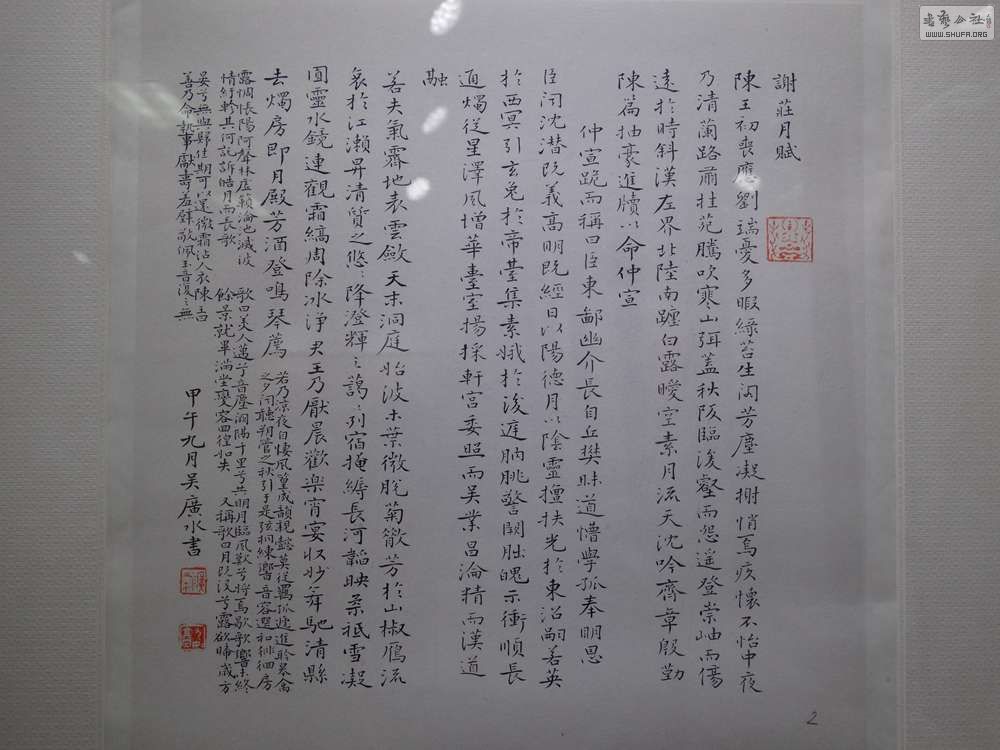 謝莊月賦
陳王初喪應劉端憂多暇綠苔生閣芳塵凝榭悄焉疚懷不怡中夜
乃清蘭路肅桂苑騰吹寒山弭蓋秋阪臨浚壑而怨遙登崇岫而傷
遠於時斜漢左界北陸南躔白露曖空素月流天沈吟齊章殷勤
陳篇抽豪進牘以命仲宣
仲宣跪而稱曰臣東鄙幽介長自丘樊昧道懵學孤奉明恩
臣聞沈潛既義高明既經日以陽德月以陰靈擅扶光於東沼嗣若英
於西冥引玄兔於帝臺集素娥於後庭朒朓警闕朏魄示衝順辰
通燭從星澤風增華臺室揚採軒宮委照而吳業昌淪精而漢道
融
若夫氣霽地表雲斂天末洞庭始波木葉微脫菊散芳於山椒鴈流
哀於江瀨昇清質之悠〻降澄輝之藹〻列宿掩縟長河韜映柔祗雪凝
圓靈水鏡連觀霜縞周除冰淨君王乃厭晨歡樂宵宴收妙舞馳清縣
去燭房即月殿芳酒登鳴琴薦
若乃涼夜自悽風篁成韻親懿莫從羈孤遞進聆皋禽
之夕聞聽朔管之秋引于是弦桐練響音容選和徘徊房
露惆悵陽阿聲林虛籟淪池滅波
情紆軫其何託訴皓月而長歌
歌曰美人邁兮音塵闕隔千里兮共明月臨風歎兮將焉歇歌響未終
餘景就畢滿堂變容回徨如失 又稱歌曰月既沒兮露欲晞歲方
晏兮無與歸佳期可以還微霜沾人衣陳王曰
善乃命執事獻壽羞璧敬佩玉音復之無
甲午九月吳廣水書
2
書藝公社
WWW.SHUFA.ORG